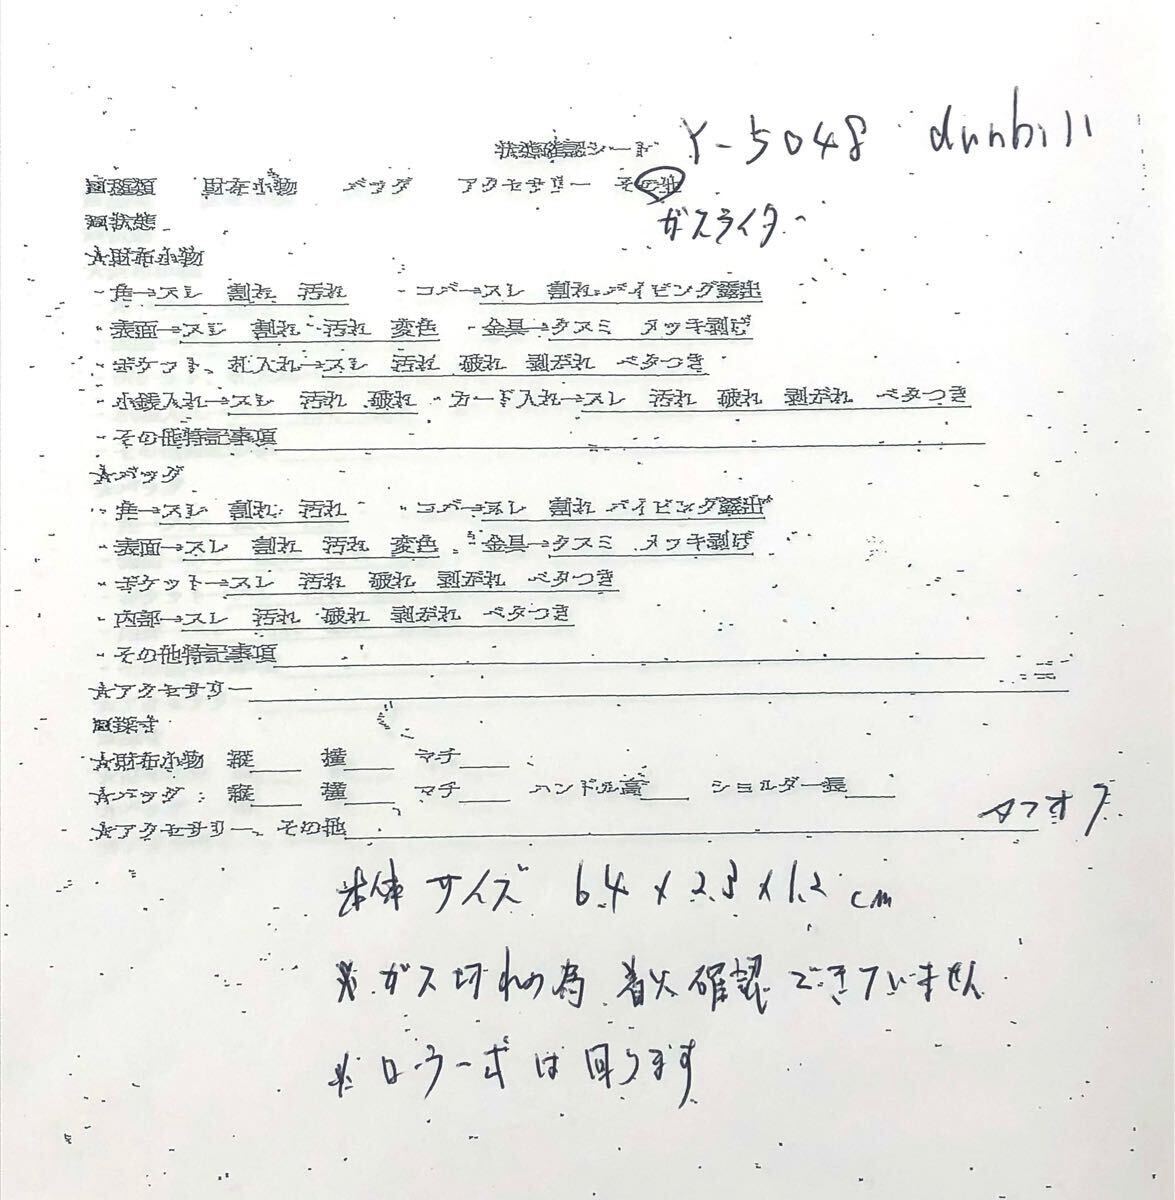 状態確認シート Y-5048 dunhill
□種類 財布小物 バッグ アクセサリー その他
ガスライター
□状態
☆財布小物
・角→スレ 割れ 汚れ ・コバ→スレ 割れ パイピング露出
・表面→スレ 割れ 汚れ 変色 ・金具→クスミ メッキ剥げ
・ポケット、札入れ→スレ 汚れ 破れ 剥がれ ベタつき
・小銭入れ→スレ 汚れ 破れ ・カード入れ→スレ 汚れ 破れ 剥がれ ベタつき
・その他特記事項
☆バッグ
・角→スレ 割れ 汚れ ・コバ→スレ 割れ パイピング露出
・表面→スレ 割れ 汚れ 変色 ・金具→クスミ メッキ剥げ
・ポケット→スレ 汚れ 破れ 剥がれ ベタつき
・内部→スレ 汚れ 破れ 剥がれ ベタつき
・その他特記事項
☆アクセサリー
□採寸
☆財布小物 縦 横 マチ
☆バッグ : 縦 横 マチ ハンドル高 ショルダー長
☆アクセサリー、その他
本体サイズ 6.4×2.3×1.2cm
※ガス切れの為 着火確認できていません
※ローラーは回ります